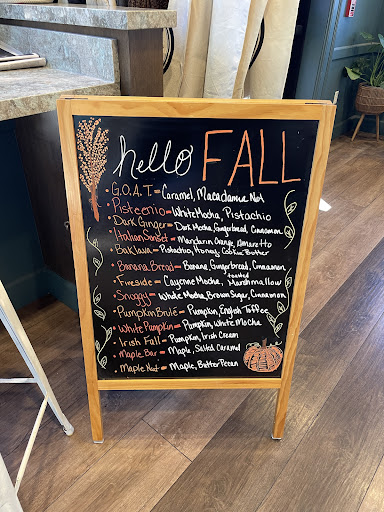 hello FALL
G.O.A.T = Caramel, Macadamia Nut
Pisteenio = White Mocha, Pistachio
Dark Ginger = Dark Mocha, Gingerbread, Cinnamon
Italian Sunset = Mandarin Orange, Amaretto
Baklava = Pistachio, Honey, Cookie Butter
Banana Bread = Banana, Gingerbread, Cinnamon
Fireside = Cayenne Mocha, toasted Marshmallow
Snuggy = White Mocha, Brown Sugar, Cinnamon
Pumpkin Brulé = Pumpkin, English Toffee
White Pumpkin = Pumpkin, White Mocha
Irish Fall = Pumpkin, Irish Cream
Maple Bar = Maple, Salted Caramel
Maple Nut = Maple, Butter Pecan